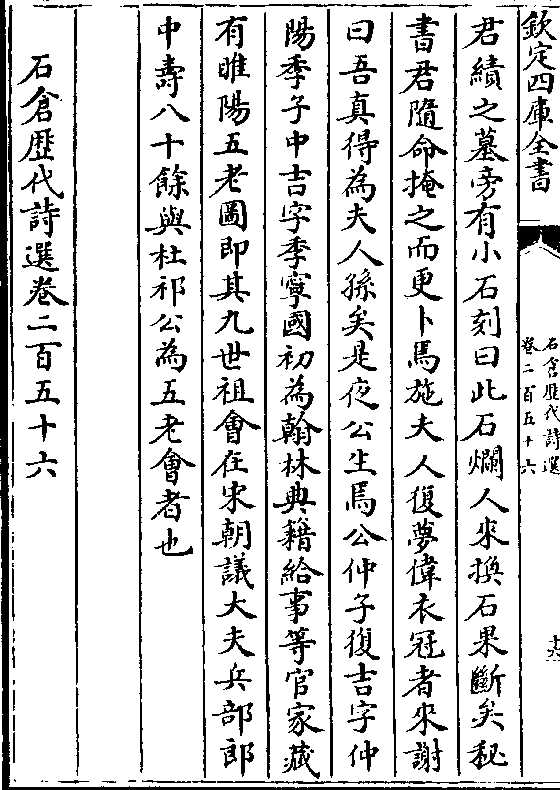 欽定四庫全書
石倉歴代詩選
卷二百五十六
十六
君績之墓旁有小石刻曰此石爛人來換石果斷矣秘
書君隨命掩之而更卜焉施夫人復夢偉衣冠者來謝
曰吾真得為夫人孫矣是夜公生焉公仲子復吉字仲
陽季子中吉字季寧國初為翰林典籍給事等官家藏
有睢陽五老圖即其九世祖會在宋朝議大夫兵部郎
中壽八十餘與杜祁公為五老會者也
石倉歴代詩選卷二百五十六